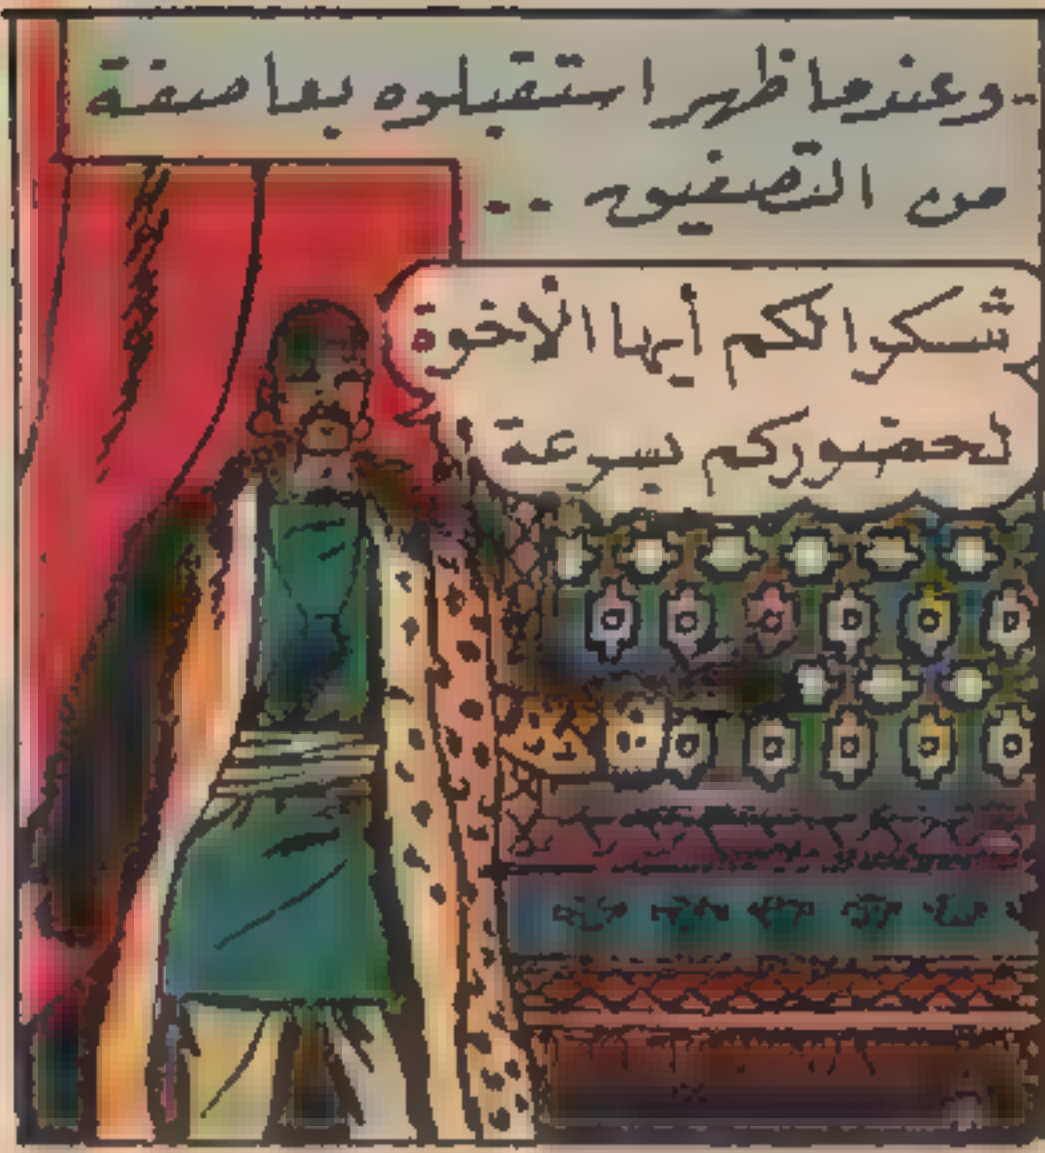 -وعندما ظهر استقبلوه بعاصفة
من التصفيق ..
شكرا لكم أيها الأخوة
لحضوركم بسرعة